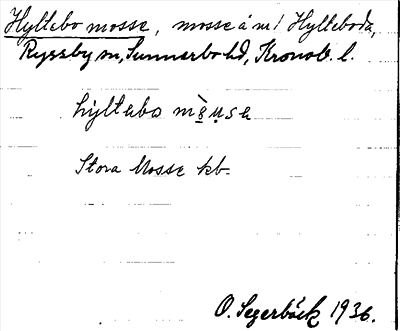 Hyltebo mosse, mosse å nr 1 Hylteboda,
Ryssby sn, Sunnerbo hd, Kronob. l.
hyltebo
Stora Mosse kb.
O. Segerbäck 1936.